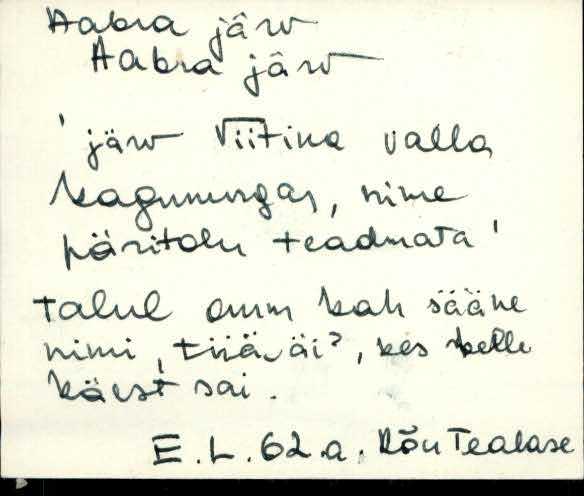 Aabra järv
Aabra järv
'järv Viitina valla
kagunurgas, nime
päritolu teadmata'
talul omm kah sääne
nimi, tiiä‿äi?, kes kelle
käest sai.
E.L. 62.a. Kõu Tealase